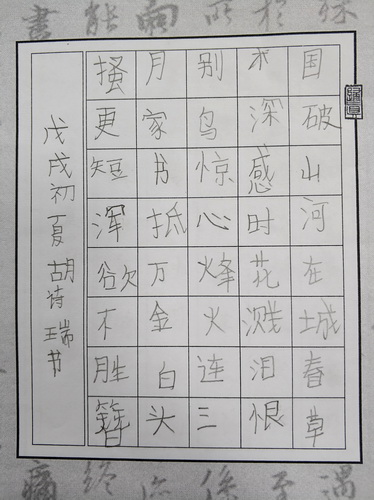 国破山河在城春草
木深感时花溅泪恨
别鸟惊心烽火连三
月家书抵万金白头
搔更短浑欲不胜簪
戊戌初夏胡诗瑞节